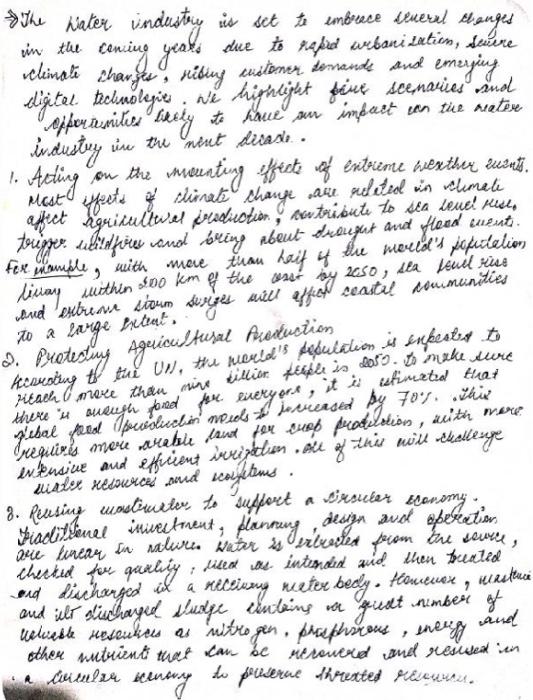 ⇒ The Water industry is set to embrace several changes
in the coming years due to rapid urbanization, severe
climate changes, rising customer demands and emerging
digital technologies. We highlight five scenarios and
opportunities likely to have an impact on the water
industry in the next decade.
1. Acting on the mounting effects of extreme weather events.
Most effects of climate change are related in climate
affect agricultural production, contribute to sea level rise,
trigger wildfires and bring about drought and flood events.
For example, with more than half of the world's population
living within 200 km of the coast by 2050, sea level rise
and extreme storm surges will affect coastal communities
to a large extent.
2. Protecting Agricultural Production
According to the UN, the world's population is expected to
reach more than nine billion people in 2050. to make sure
there is enough food for everyone, it is estimated that
global food production needs to increased by 70%. This
requires more arable land for crop production, with more
extensive and efficient irrigation. all of this will challenge
water resources and ecosystems.
3. Reusing wastewater to support a circular economy.
Traditional investment, planning, design and operation
are linear in nature. Water is extracted from the source,
checked for quality, used as intended and then treated
and discharged in a receiving water body. However,
and its discharged sludge contains a great number of
valuable resources as nitrogen, phosphorous, energy and
other nutrients that can be recovered and reused in
a circular economy to preserve threated resources.